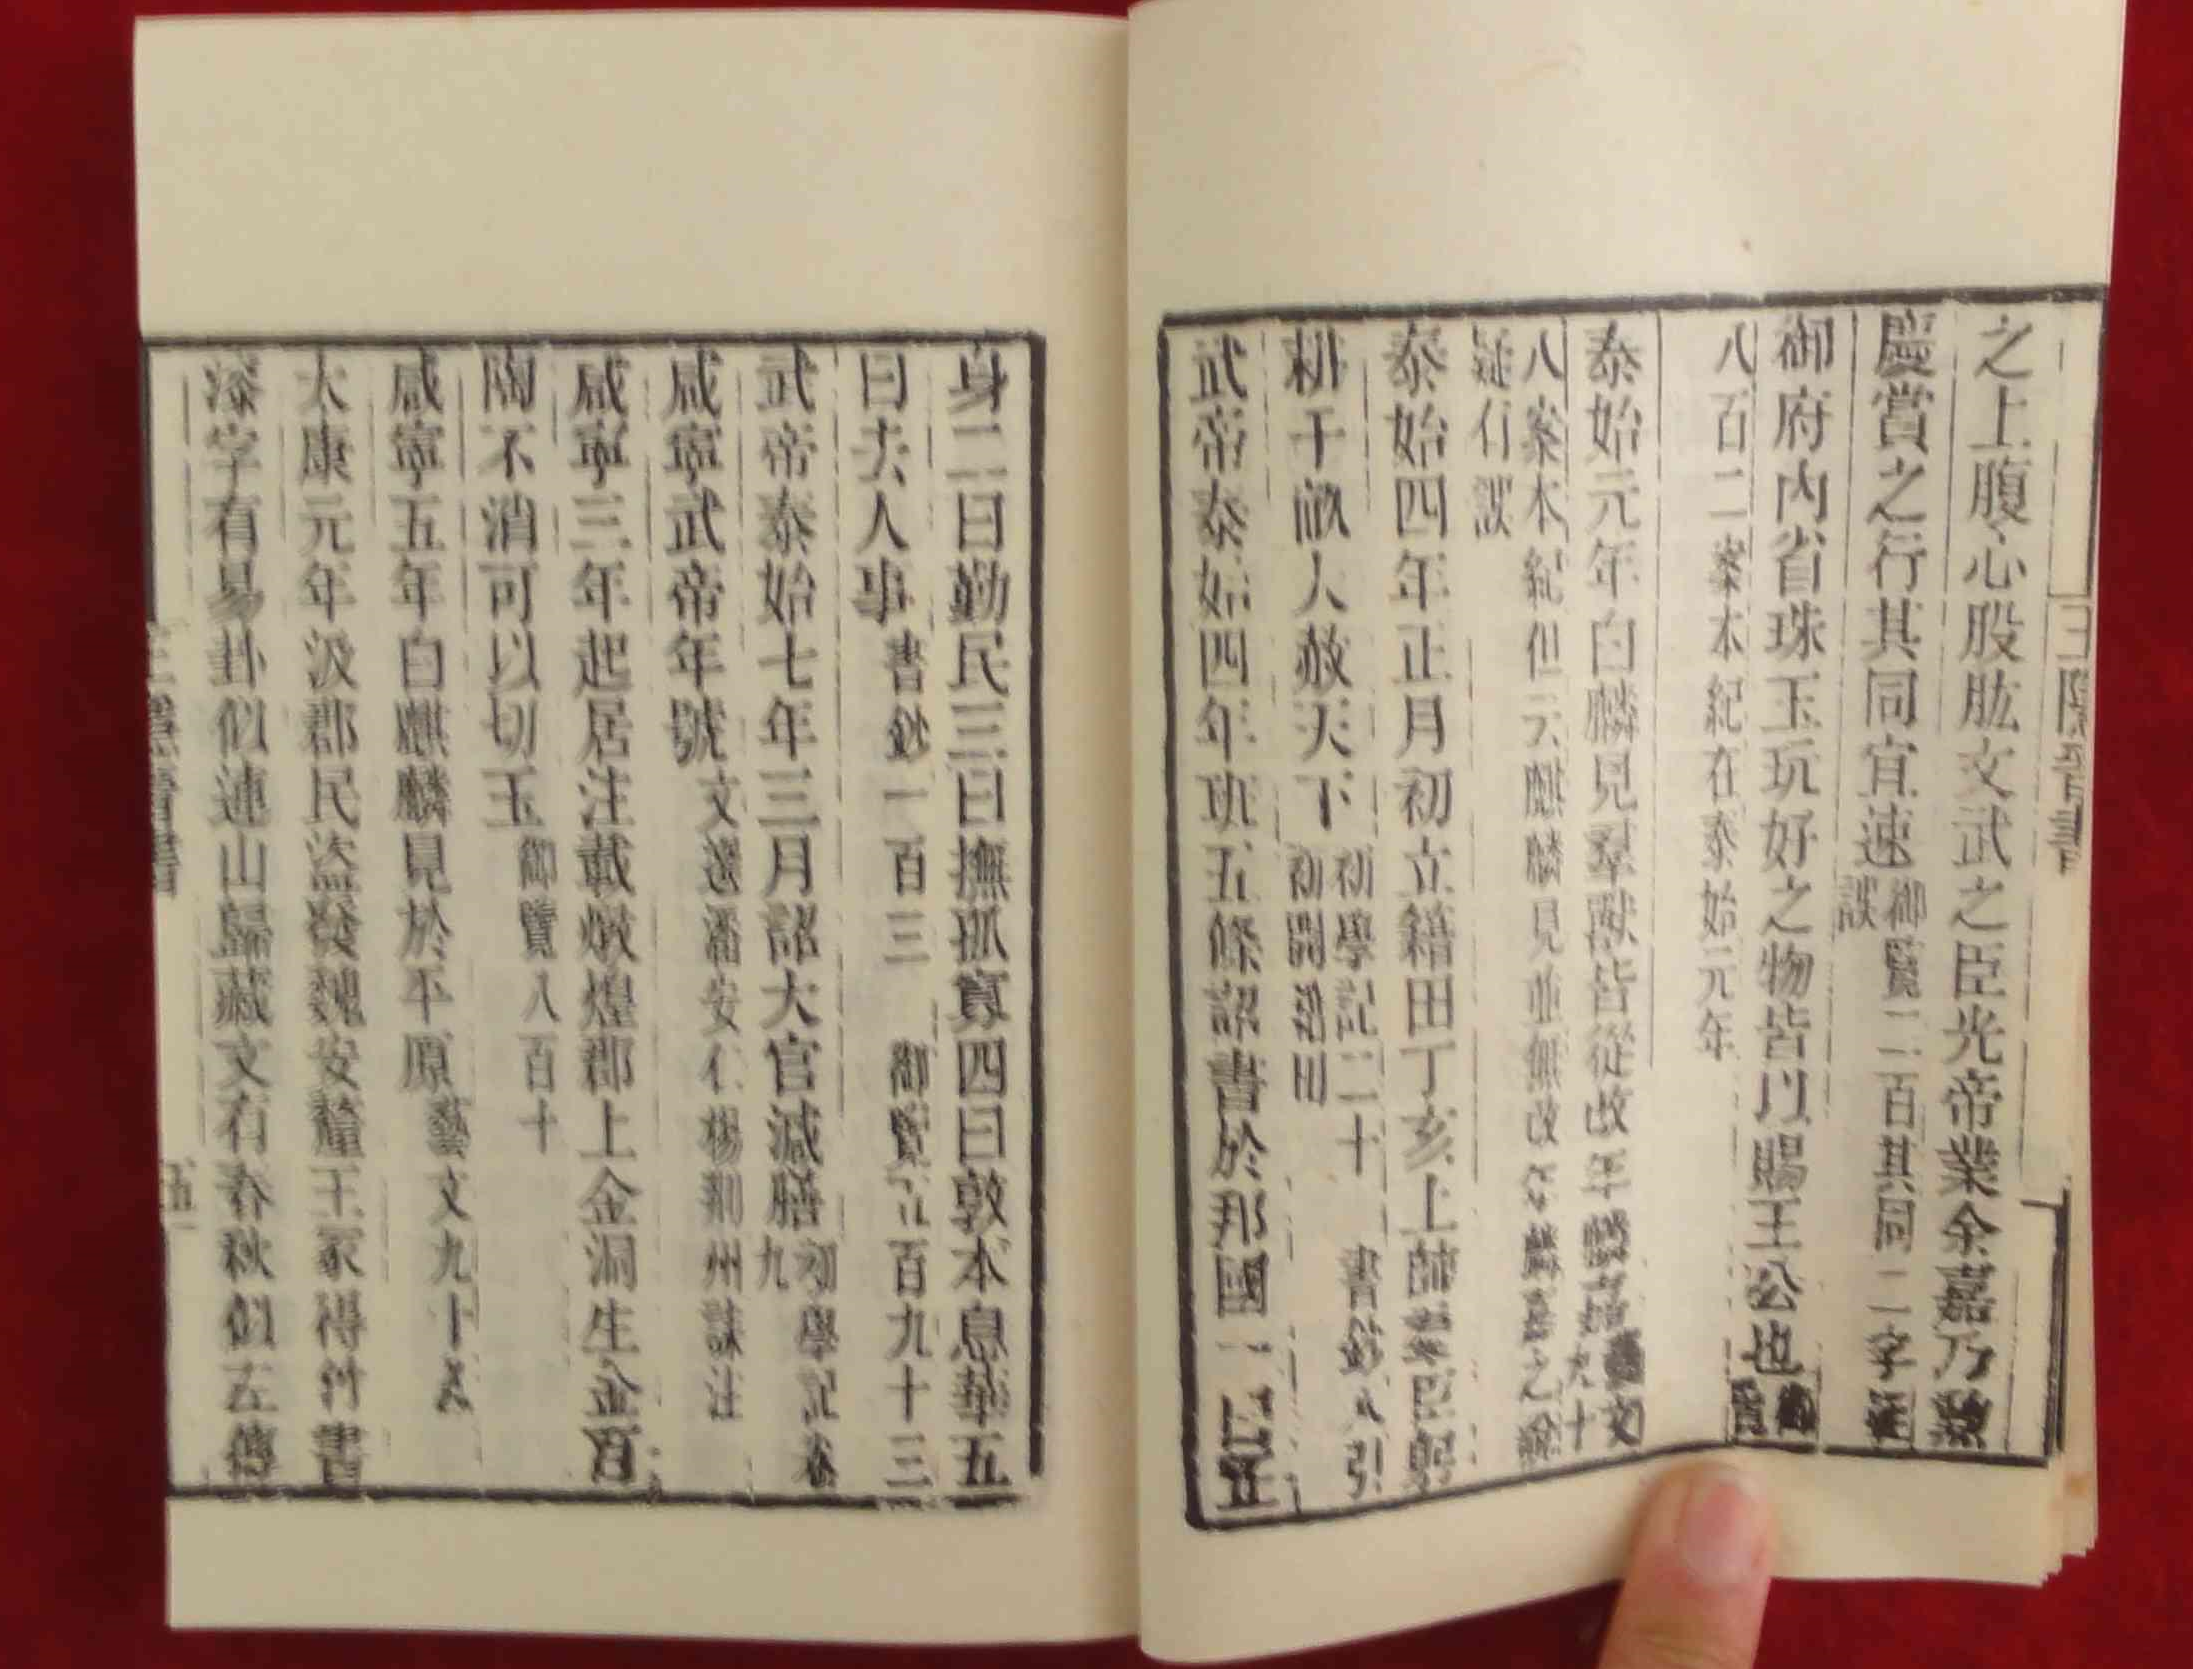 王隱晉書
之上腹心股肱文武之臣光帝業余嘉乃勲
慶賞之行其同宜速御覽二百其同二字
誤
御府内省珠玉玩好之物皆以賜王公也
八百二案本紀在泰始元年
泰始元年白麟見羣獸皆從改年麟嘉
九十
八案本紀但云麒麟見並無改年麟嘉之
疑有誤
泰始四年正月初立籍田丁亥上帥羣臣躬
耕千畝大赦天下初學記二十 書鈔九引
初開籍田
武帝泰始四年班五條詔書於邦國一曰正
身二曰勤民三曰撫孤寡四曰敦本息華五
曰去人事書鈔一百三 御覽五百九十三
武帝泰始七年三月詔大官減膳初學記卷
九
咸寧武帝年號文選潘安仁楊荆州誄注
咸寧三年起居注載燉煌郡上金洞生金百
陶不消可以切玉御覽八百十
咸寧五年白麒麟見於平原藝文九十八
太康元年汲郡民盜發魏安釐王冢得竹書
漆字有易卦似連山歸藏文有春秋似左傳
王隱晉書
五